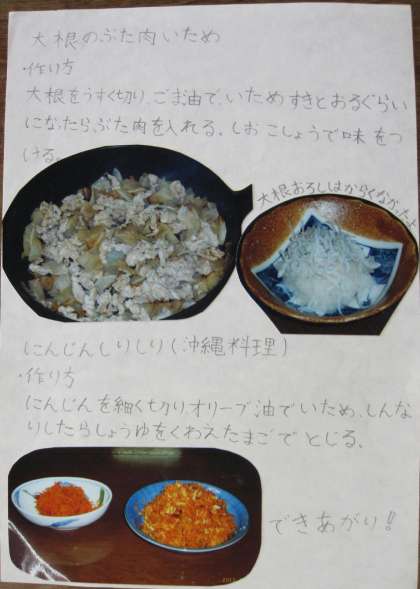 大根のぶた肉いため
・作り方
大根をうすく切り、ごま油で、いためすきとおるぐらい
になったらぶた肉を入れる。しおこしょうで味をつ
ける。
大根おろしはからくなかったよ
にんじんしりしり(沖縄料理)
・作り方
にんじんを細く切りオリーブ油でいため、しんな
りしたらしょうゆをくわえたまごでとじる、
できあがり!!